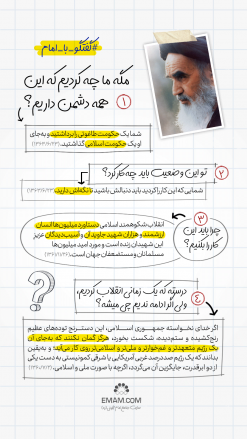 #گفتگو_با_امام
مگه ما چه کردیم که این
همه دشمن داریم؟
۱
شما یک حکومت طاغوتی را برداشتید و به‌جای
او یک حکومت اسلامی گذاشتید.
۲
تو این وضعیت باید چه‌کار کرد؟
شمایی که این کار را کردید باید دنبالش باشید تا نگه‌اش دارید.
۳
چرا باید این
کار را بکنیم؟
انقلاب شکوهمند اسلامی دستاورد میلیون‌ها انسان
ارزشمند و هزاران شهید جاویدان و آسیب‌دیدگان عزیز
این شهیدان زنده است و مورد امید میلیون‌ها
مسلمانان و مستضعفان جهان است.
درسته که یک زمانی انقلاب کردیم،
ولی اگر ادامه ندیم چی میشه؟
۴
اگر خدای نخواسته جمهوری اسلامی، این دسترنج توده‌های عظیم
رنج‌کشیده و ستم‌دیده، شکست بخورد، هرگز گمان نکنند که به‌جای آن
یک رژیم متعهدتر و غم‌خوارتر و ملی‌تر و اسلامی‌تر روی کار می‌آید؛ و به‌یقین
بدانند که یک رژیم صددرصد غربی آمریکایی یا شرقی کمونیستی به دست یکی
از دو ابرقدرت، جایگزین آن می‌گردد، اگرچه با صورت ملی و اسلامی.
EMAM.COM